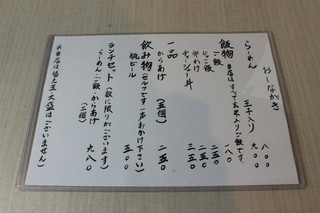 おしながき
らーめん 八〇〇
玉子入り 九〇〇
飯物 当店はすべて玄米入りご飯です
ご飯 一八〇
じゃこ飯 二五〇
チャーシュー丼 三五〇
一品
からあげ(五個) 二五〇
飲み物(セルフです一声おかけ下さい)
瓶ビール 五〇〇
ランチセット(数に限りがございます)
らーめん・ご飯・からあげ(三個) 九八〇
※当店は替え玉・大盛はございません